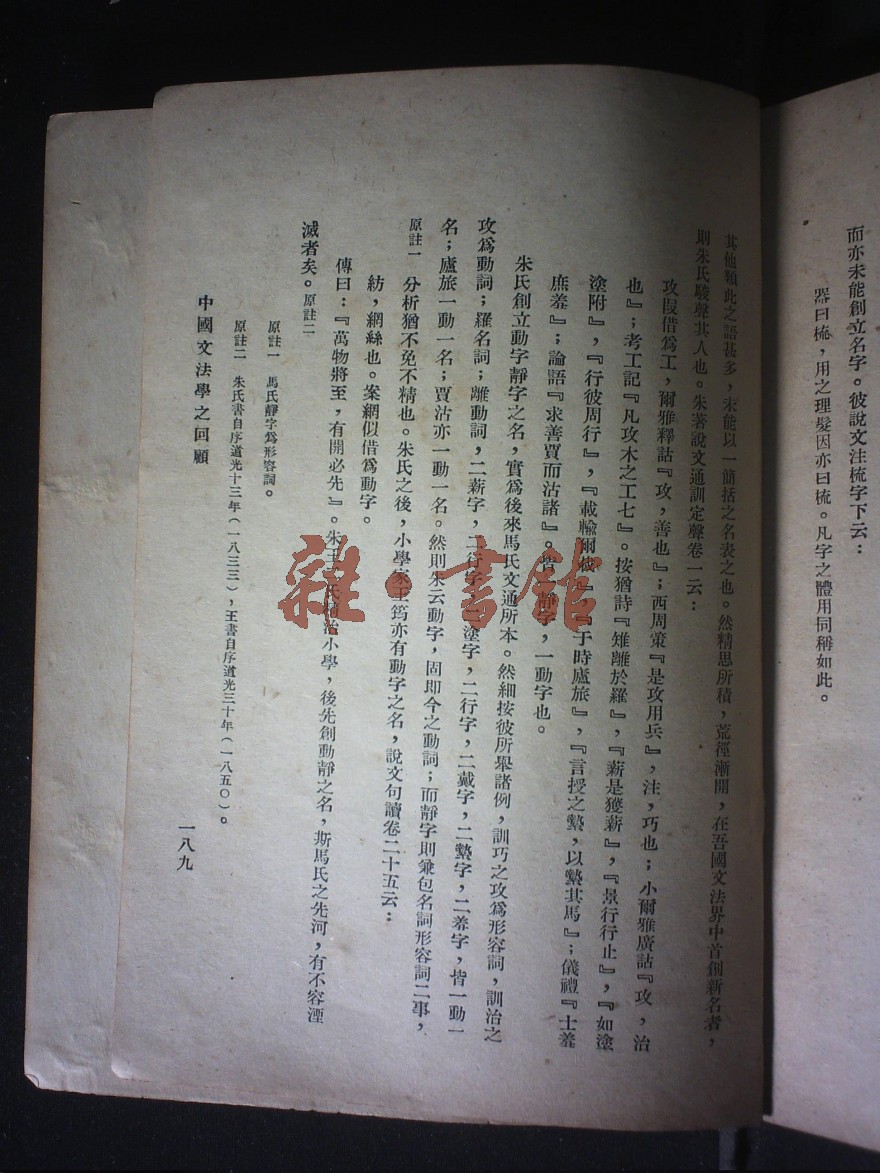 而亦未能創立名字。彼說文注梳字下云：
器曰梳，用之理髮因亦曰梳。凡字之體用同稱如此。
其他類此之語甚多，未能以一簡括之名表之也。然精思所積，荒徑漸開，在吾國文法界中首創新名者，
則朱氏駿聲其人也。朱著說文通訓定聲卷一云：
攻叚借爲工，爾雅釋詁『攻，善也』；西周策『是攻用兵』，注，巧也；小爾雅廣詁『攻，治
也』；考工記『凡攻木之工七』。按猶詩『雉離於羅』，『薪是獲薪』，『景行行止』，『如塗
塗附』，『行彼周行』，『載輸爾載』，『于時廬旅』，『言授之縶，以縶其馬』；儀禮『士羞
庶羞』；論語『求善賈而沽諸』。皆一靜字，一動字也。
朱氏創立動字靜字之名，實爲後來馬氏文通所本。然細按彼所舉諸例，訓巧之攻爲形容詞，訓治之
攻爲動詞；羅名詞；離動詞，二薪字，二行字，二塗字，二行字，二載字，二縶字，二羞字，皆一動一
名；廬旅一動一名；賈沽亦一動一名。然則朱云動字，固即今之動詞；而靜字則兼包名詞形容詞二事，
原註一 分析猶不免不精也。朱氏之後，小學家王筠亦有動字之名，說文句讀卷二十五云：
紡，網絲也。案網似借爲動字。
傳曰：『萬物將至，有開必先』。朱王二氏精治小學，後先創動靜之名，斯馬氏之先河，有不容湮
滅者矣。原註二
原註一 馬氏靜字爲形容詞。
原註二 朱氏書自序道光十三年（一八三三），王書自序道光三十年（一八五〇）。
中國文法學之回顧
一八九
雜·書館